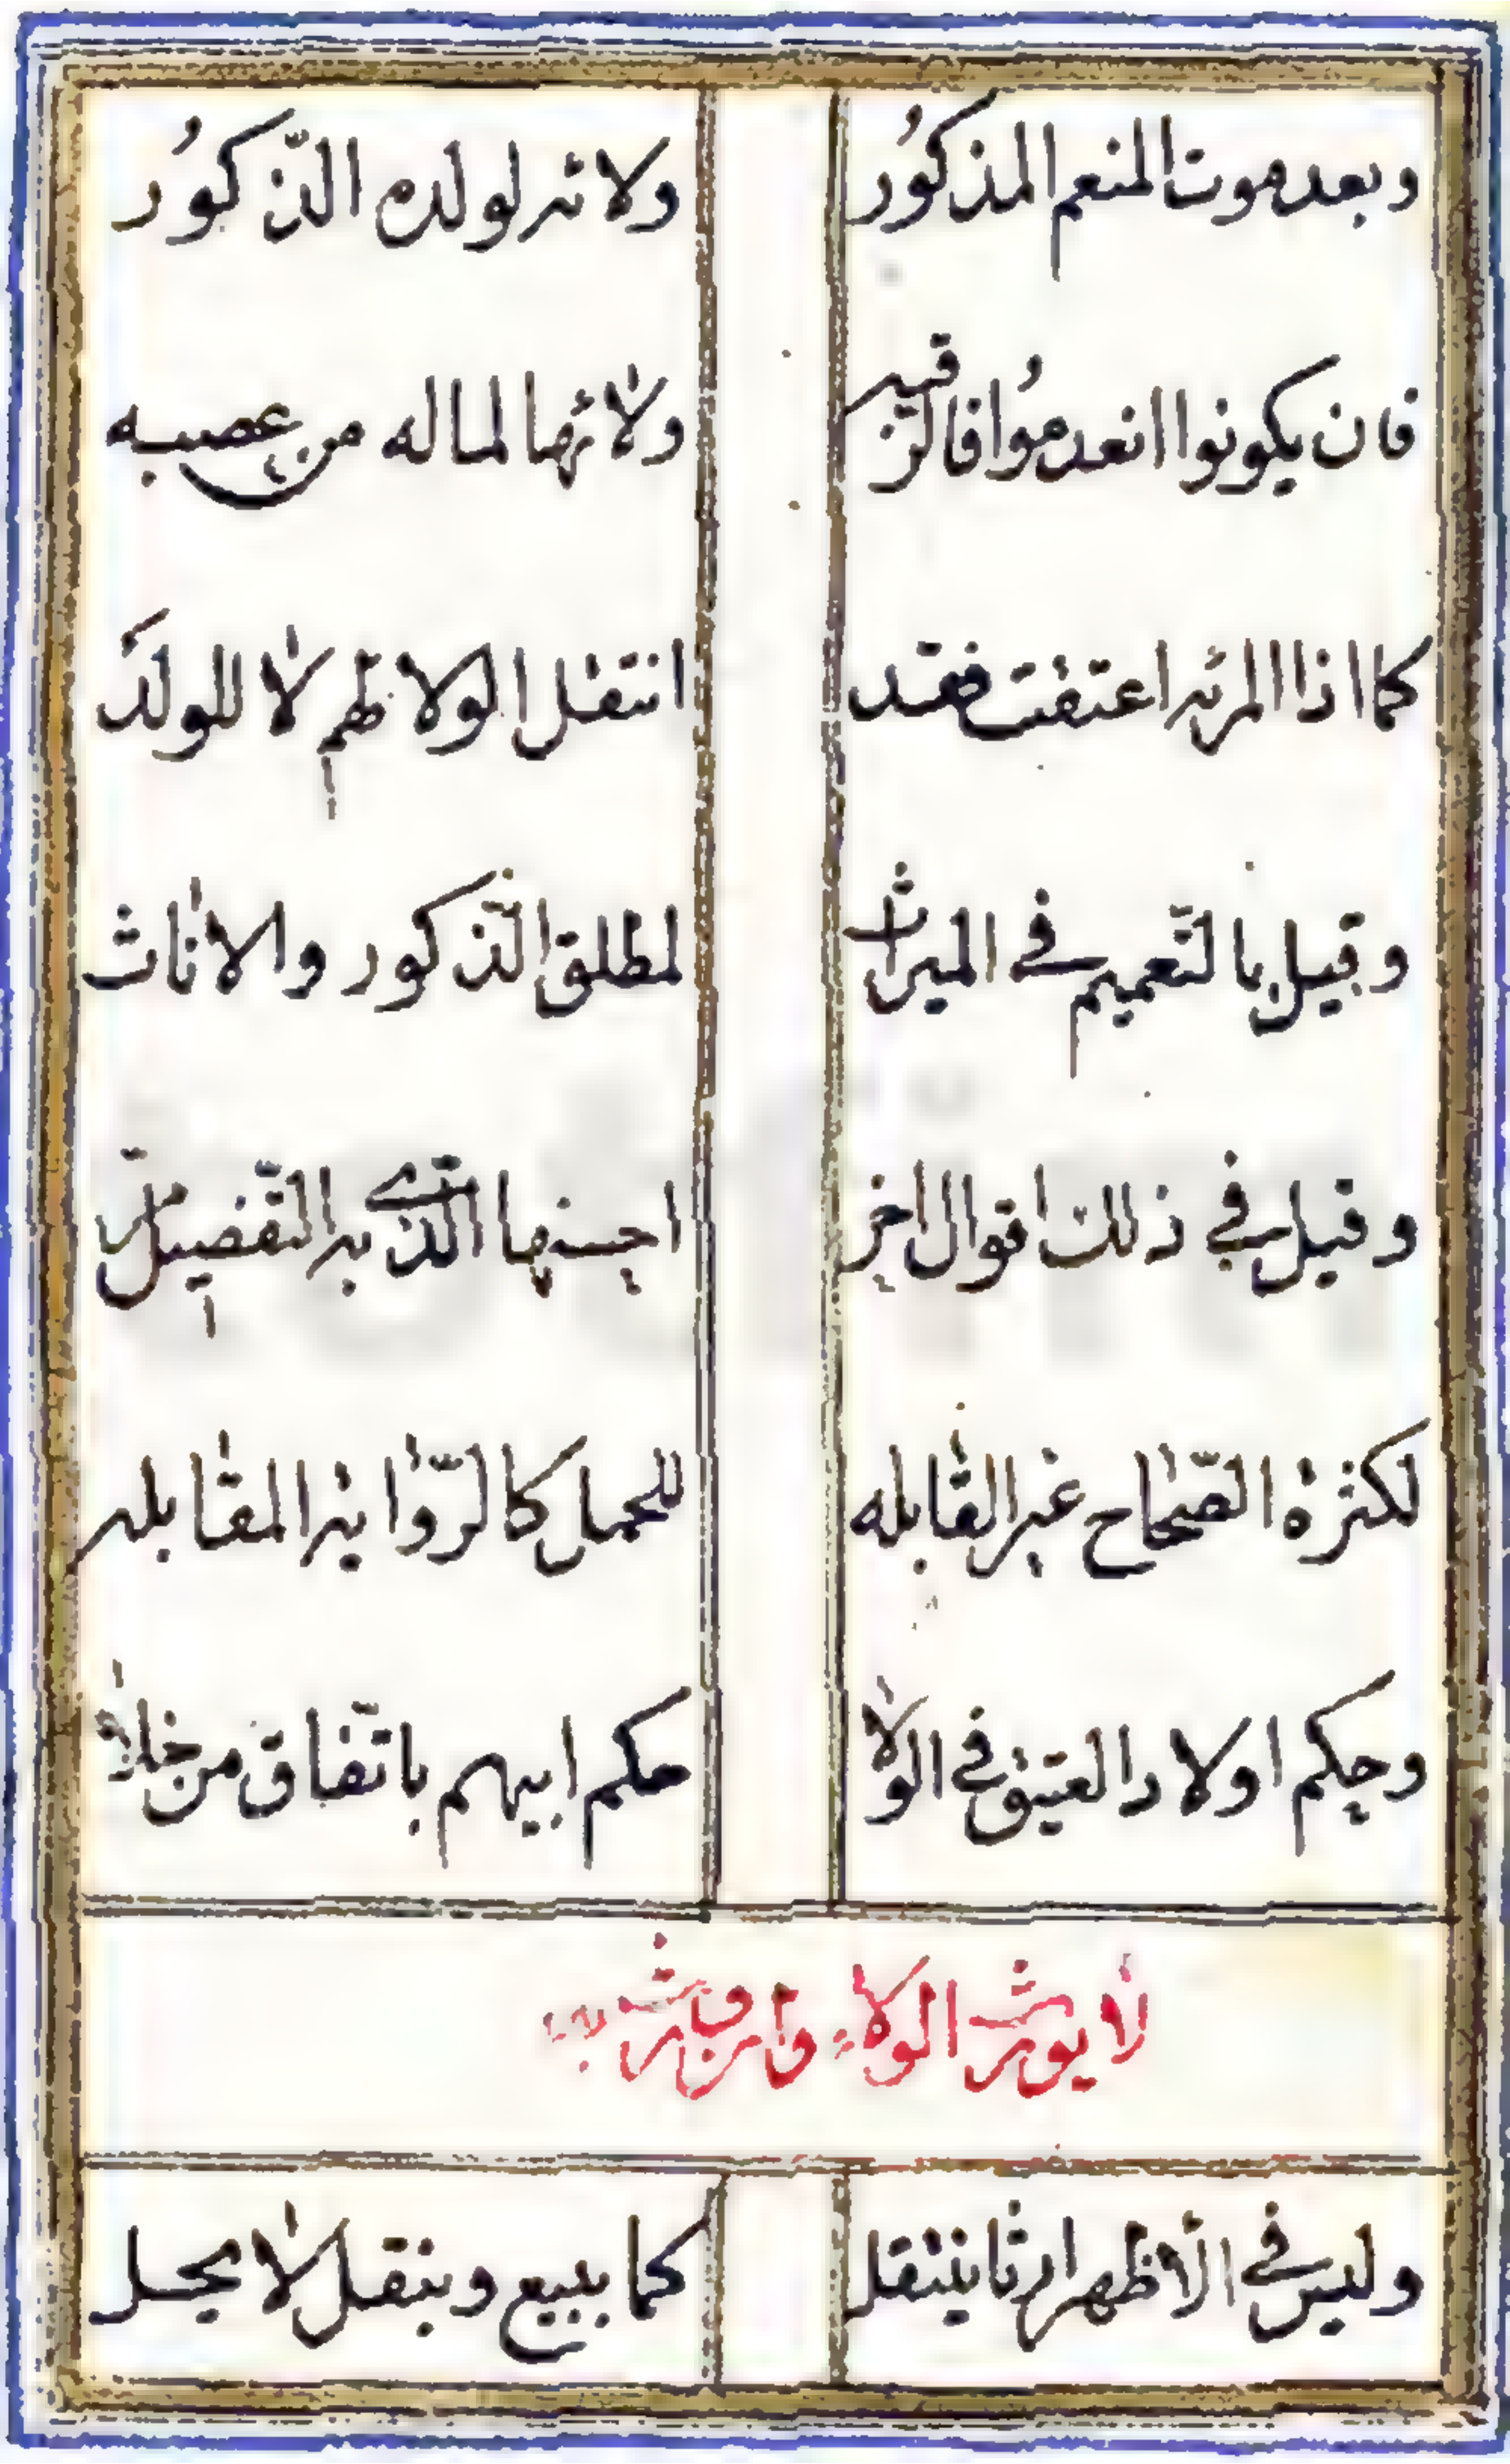 وبعد موت المنعم المذكُور ولائه لولده الذّكُور
فان يكونوا انعدمُوا فالرّقبه ولائها لماله من عصبه
كما اذا المرئه اعتقت فقد انتقل الولا لهم لا للولد
وقيل بالتّعميم فى الميراث لمطلق الذّكور والاناث
وقيل فى ذلك اقوال اخر احسنها الّذى به التّفصيل مرّ
لكثرة الصّحاح غير القابله للحمل كالرّواية المقابله
وحكم اولاد العتيق فى الولا حكم ابيهم باتّفاق من خلا
لا يورث الولاء وان يورث به
وليس فى الأظهر ارثا ينتقل كما ببيع وبنقل لا يحل